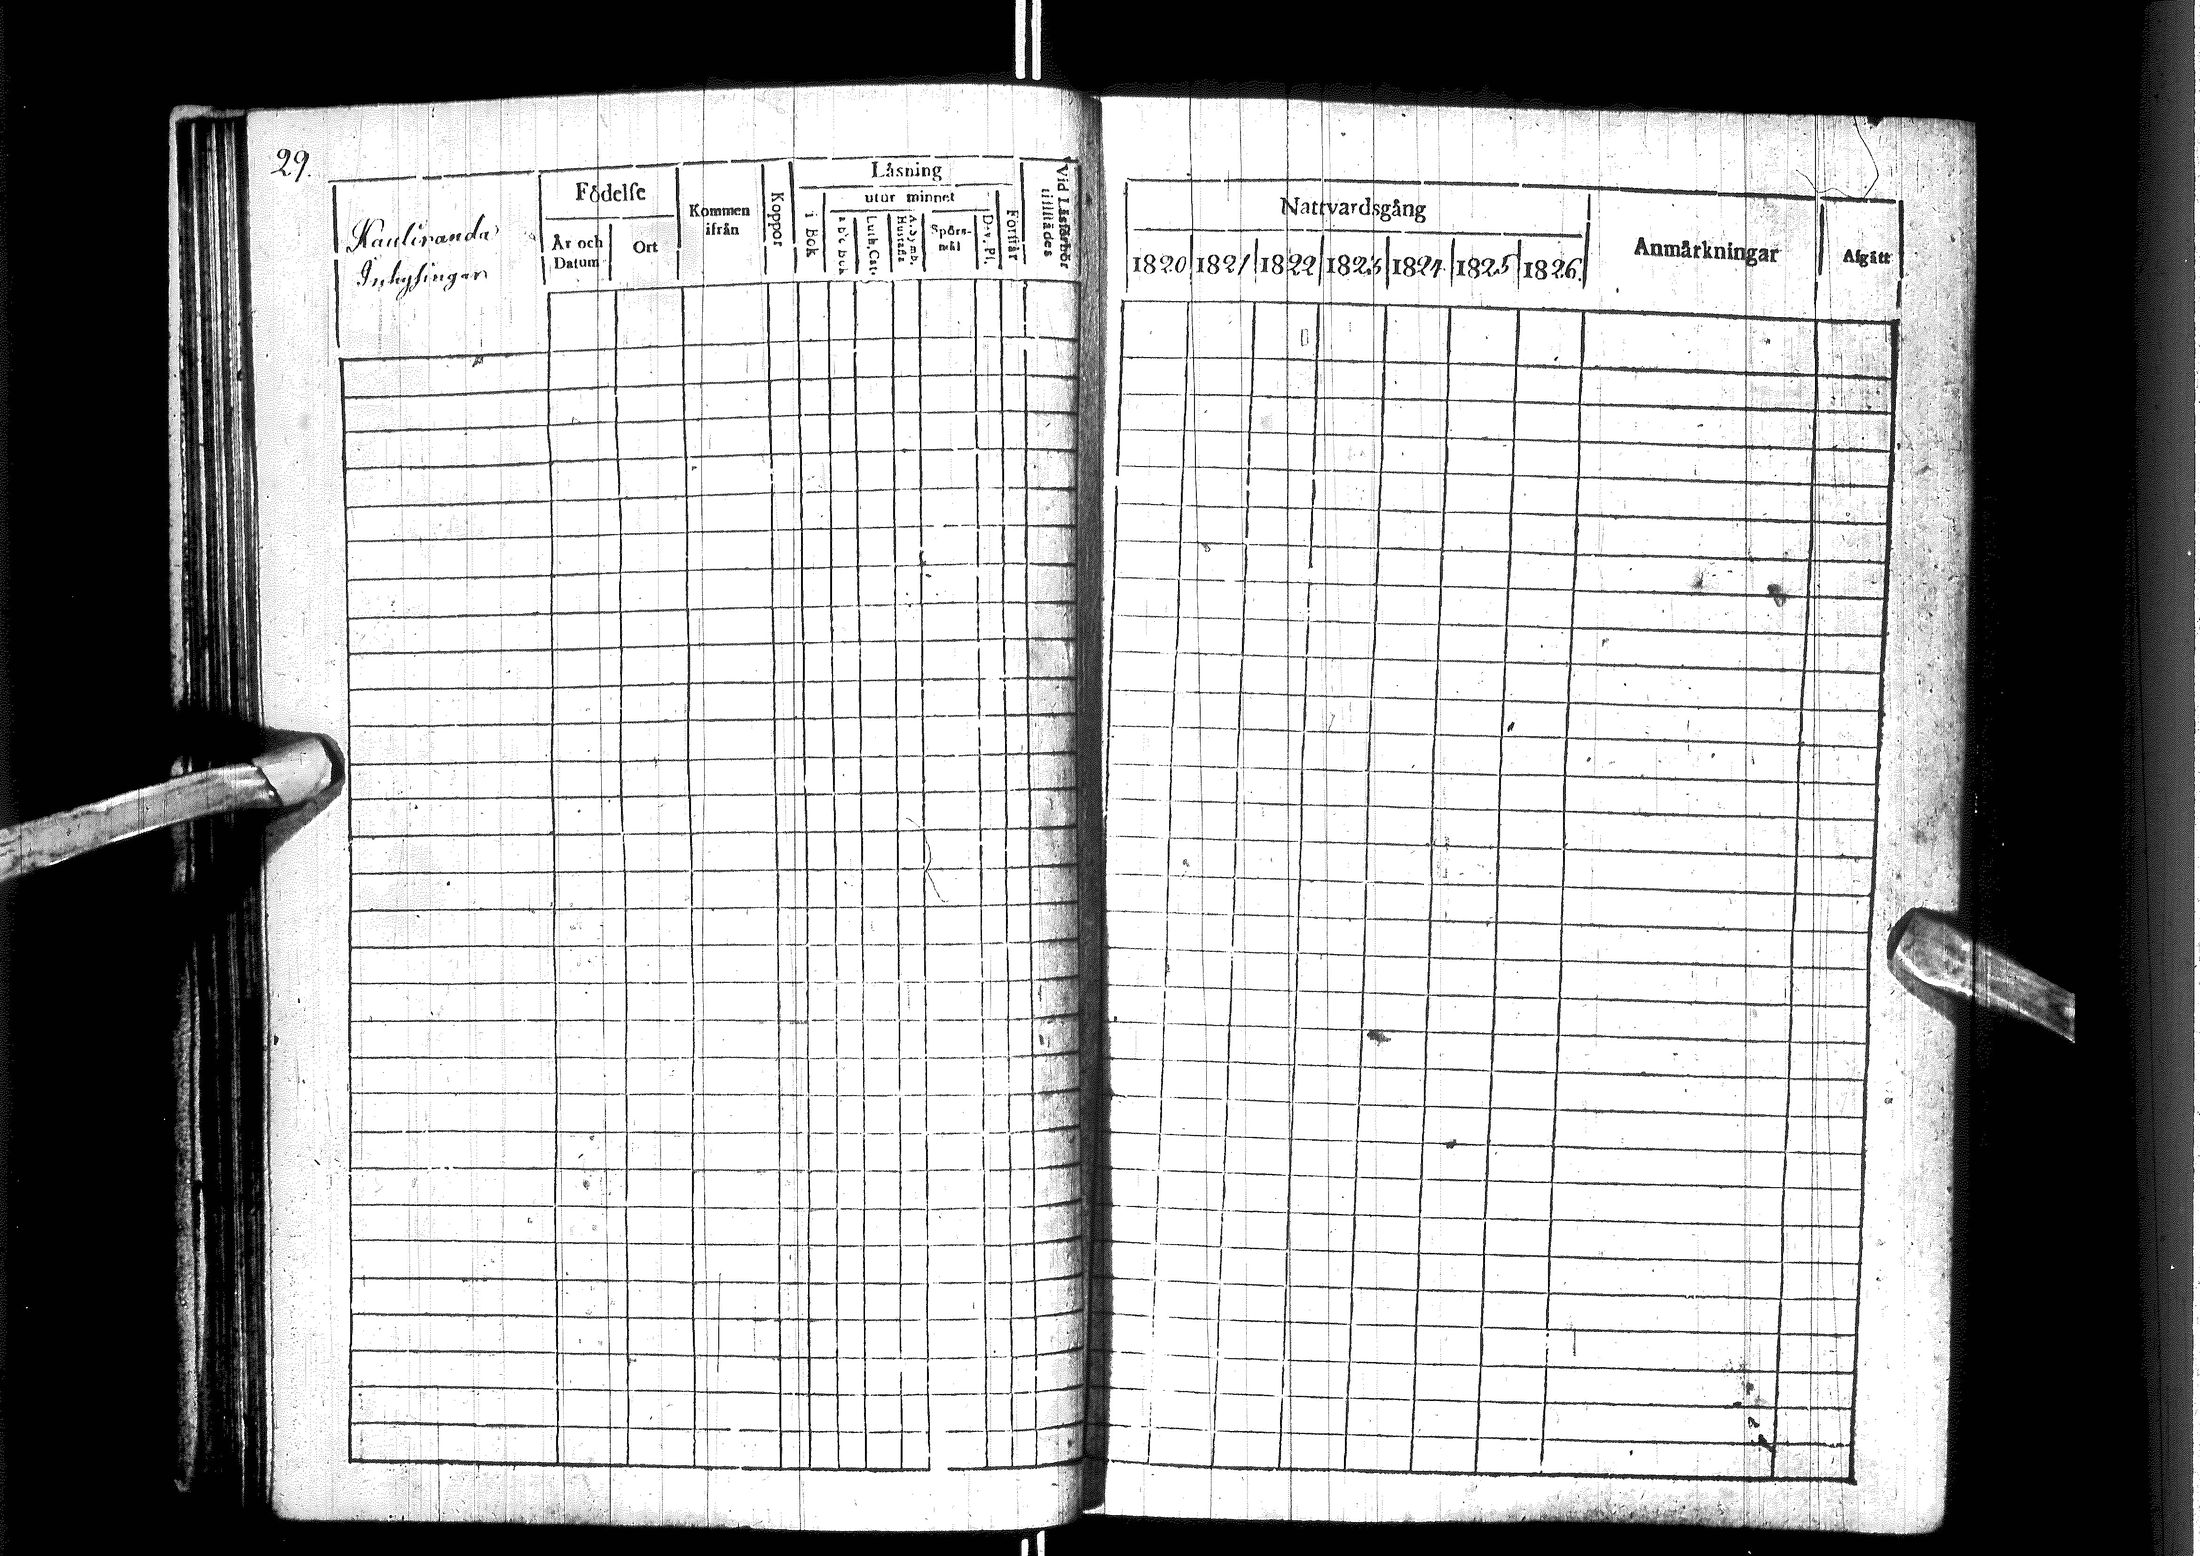 29.
Kauliranda
Inhysingar
Födelse
År och
Datum
Ort
Kommen
ifrån
Koppor
Läsning
i Bok
utur minnet
a b c bok
Luth. Cat.
A. Symb.
Hustafla
Spörs-
mål
Dav. Ps.
Förstår
Vid Läsförhör
tillstädes
Nattvardsgång
1820 1821 1822 1823 1824 1825 1826.
Anmärkningar
Afgått